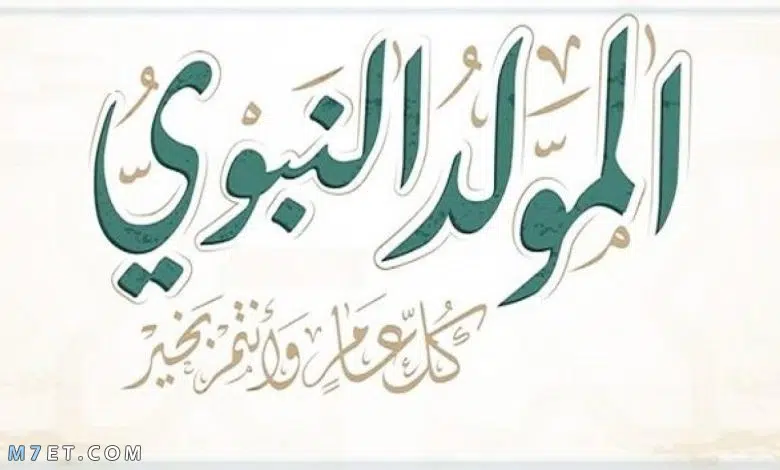 المولد النبوي
كل عام وأنتم بخير
M7ET.COM